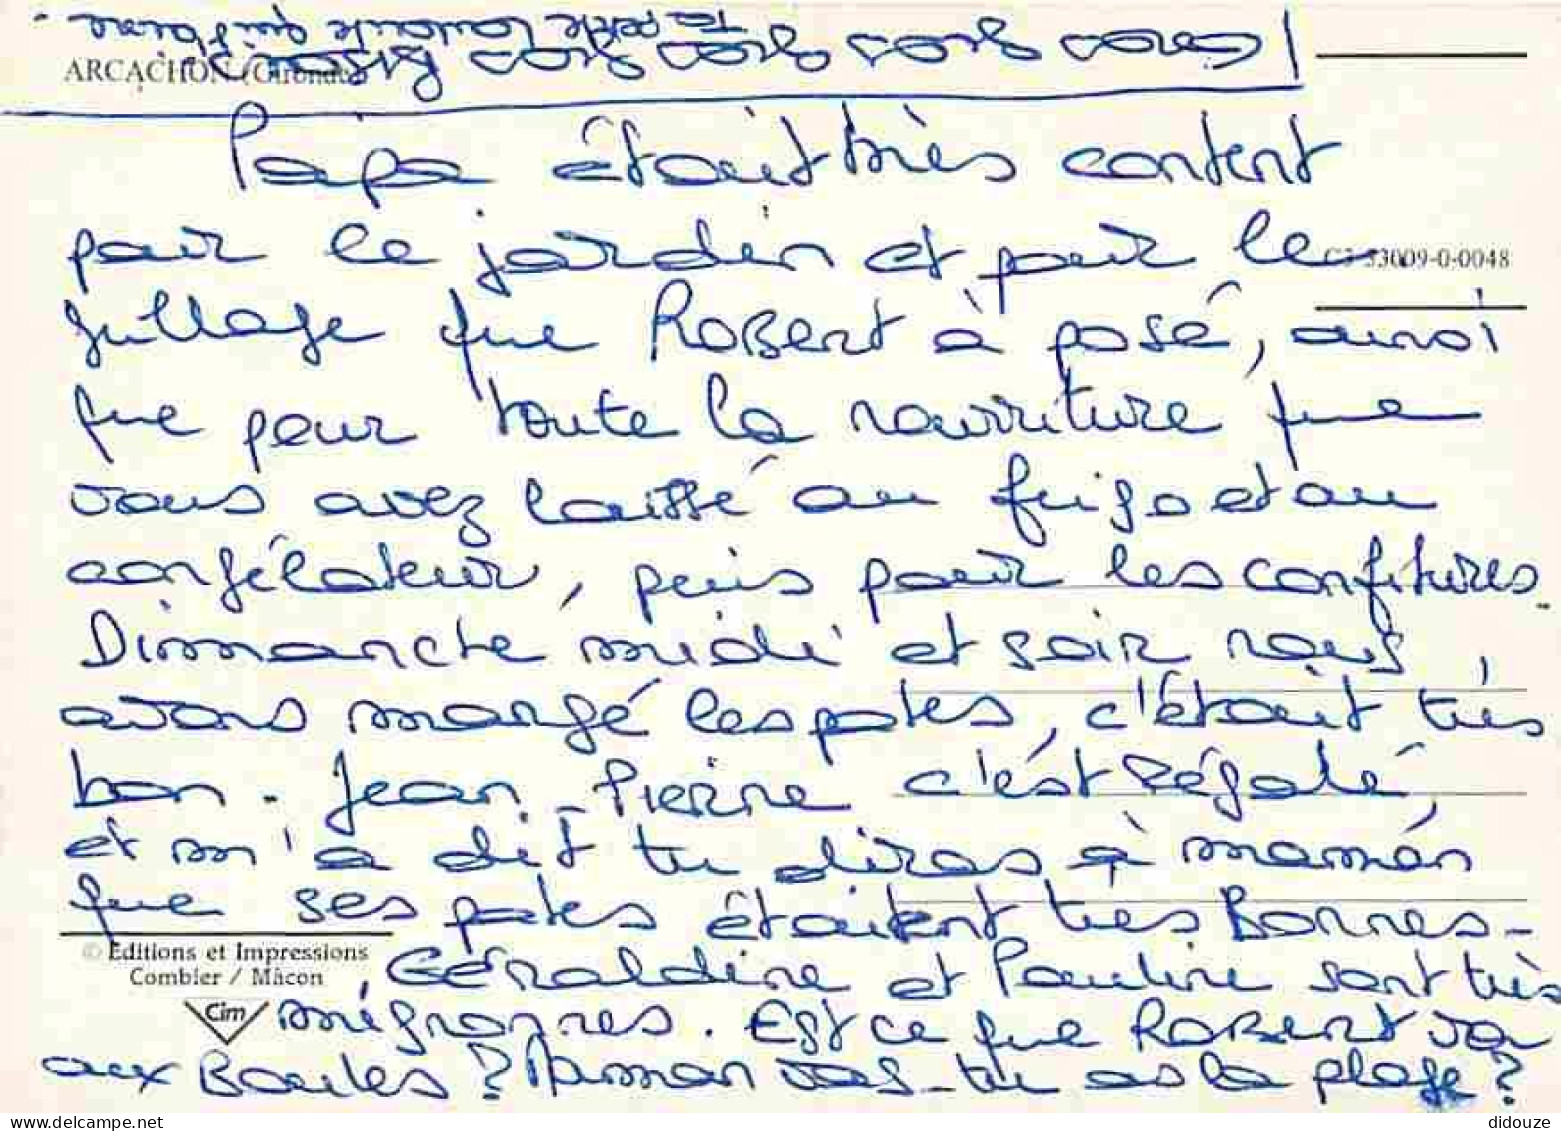 Gros Gros Gros Gros Gros Bisous.
Ta petite Louloute qui t'aime.
ARCACHON (Gironde)
Papa était très content
pour le jardin et pour le
C3 33009-0-0048
grillage que Robert à posé, ainsi
que pour toute la nourriture que
vous avez laissé au frigo et au
congélateur, puis pour les confitures.
Dimanche midi et soir nous
avons mangé les pates, c'était très
bon. Jean-Pierre c'est régalé,
et m'a dit tu diras à maman
que ses pates étaient très Bonnes-
© Editions et Impressions
Combier / Mâcon
Géraldine et Pauline sont très
Cim
mignonnes. Est ce que Robert va
aux Boules? Maman vas-tu as la plage?
delcampe.net
didouze